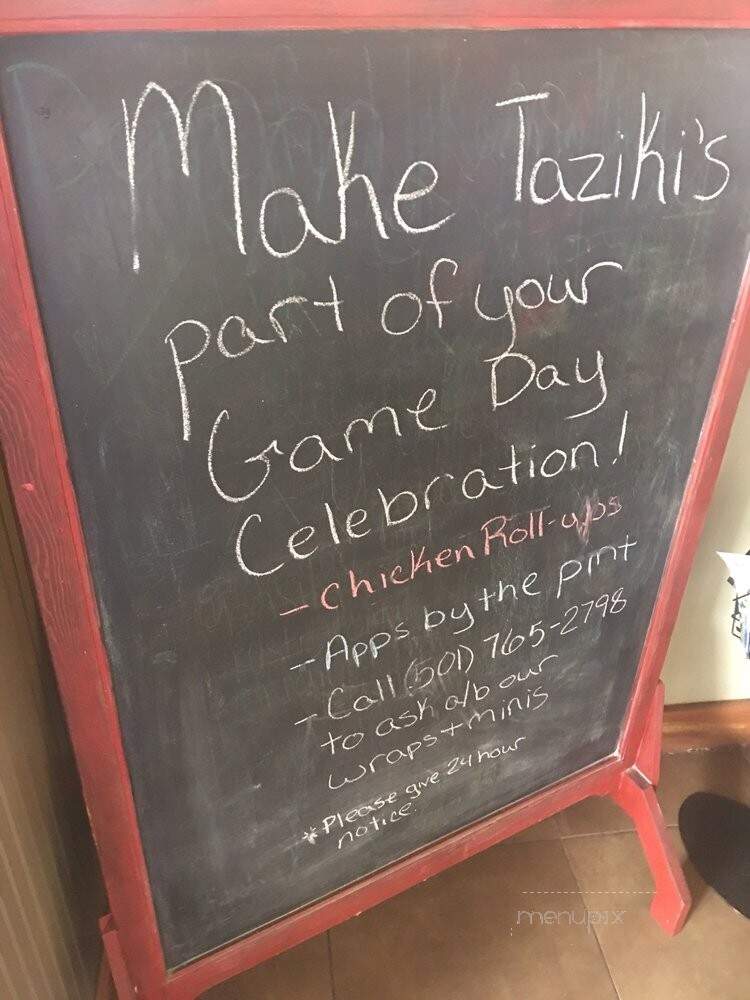 Make Taziki's
part of your
Game Day
Celebration!
- Chicken Roll-ups
- Apps by the pint
- Call (501) 765-2798
to ask a/b our
wraps + minis
* Please give 24 hour
notice.
menupix